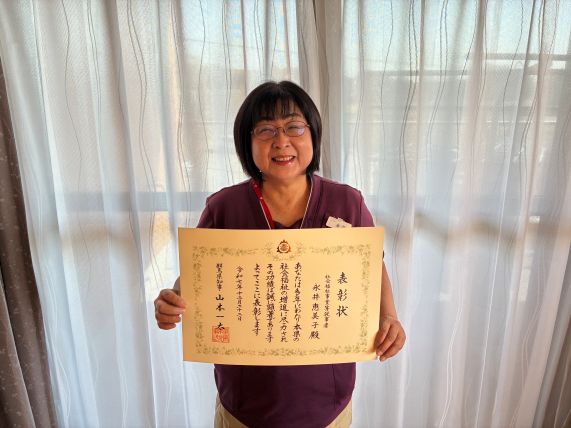 表彰状
社会福祉事業等従事者
永井恵美子殿
あなたは多年にわたり本県の
社会福祉の増進に尽力され
その功績は誠に顕著であります
よってここに表彰します
令和七年十二月二十八日
群馬県知事 山本一太